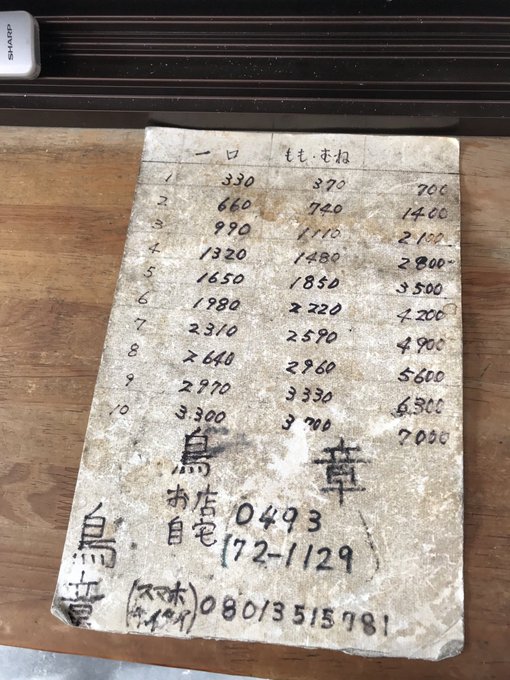 SHARP
一口 もも・むね
1 330 370 700
2 660 740 1400
3 990 1110 2100
4 1320 1480 2800
5 1650 1850 3500
6 1980 2220 4200
7 2310 2590 4900
8 2640 2960 5600
9 2970 3330 6300
10 3300 3700 7000
鳥 章
お店
自宅 0493
72-1129
(スマホ
ケイタイ) 08013515781